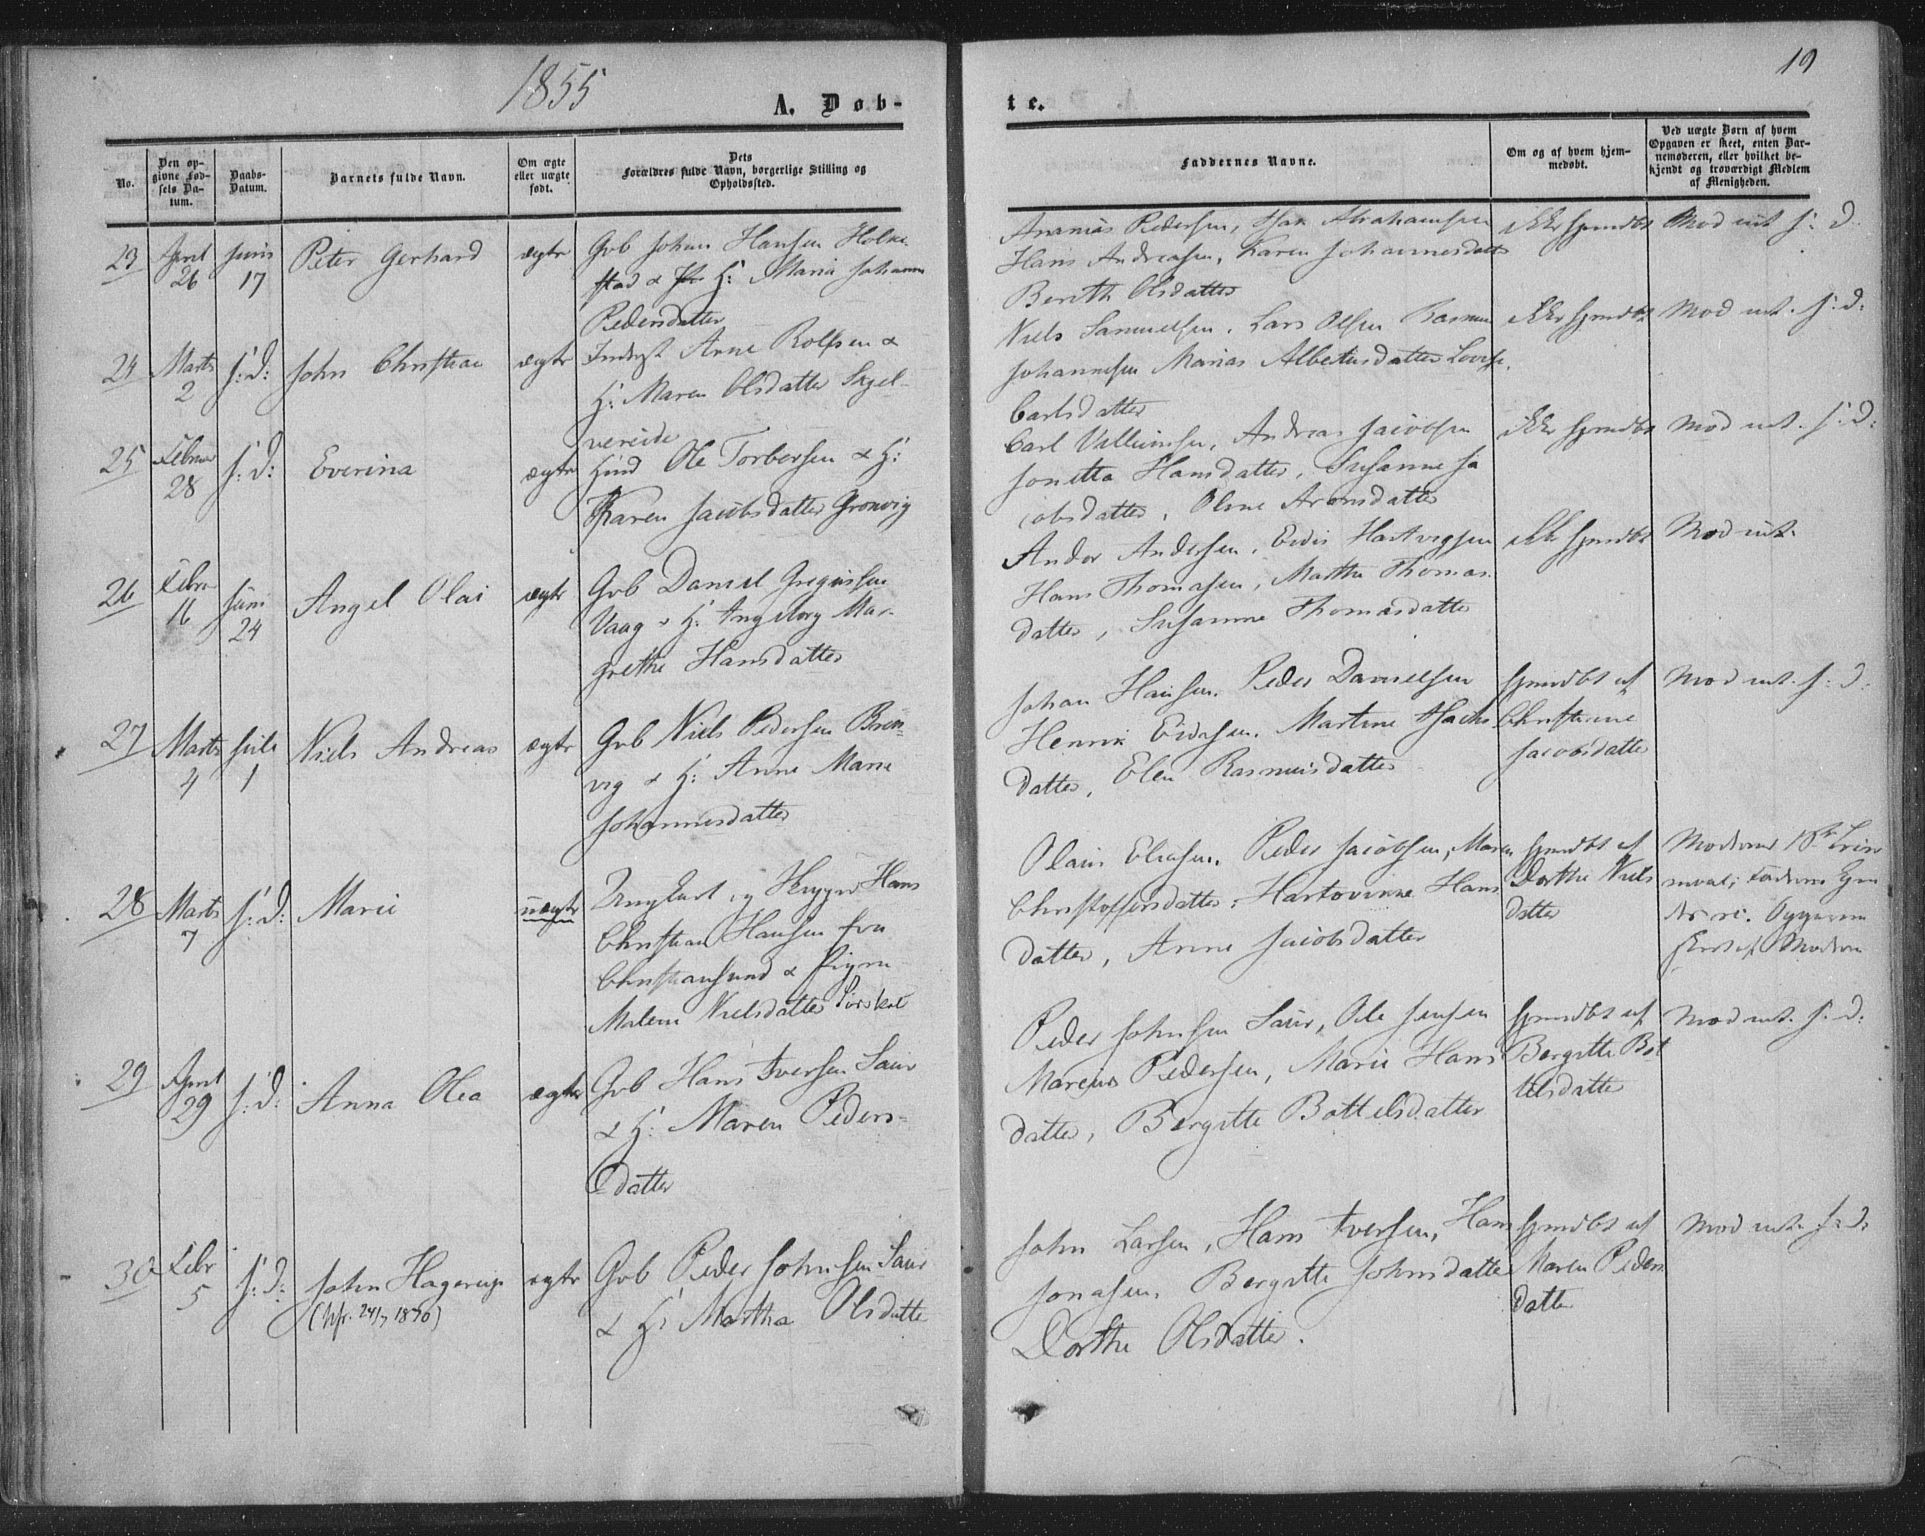 1855
19
A. Døb-
te.
No.
Den op-
givne Fød-
sels Da-
tum.
Daabs-
Datum.
Barnets fulde Navn.
Om ægte
eller uægte
født.
Dets
Forældres fulde Navn, borgerlige Stilling og
Opholdssted.
Faddernes Navne.
Om og af hvem hjem-
medøbt.
Ved uægte Børn af hvem
Opgaven er skeet, enten Bar-
nemoderen, eller hvilket be-
kjendt og troværdigt Medlem
af Menigheden.
23
April
26
Juni
17
Peter Gerhard
ægte
Gvb Johan Hansen Holke
stad & H: Maria Johanna
Pedersdatter
Ananias Pedersen, Isak Abrahamsen
Hans Andreasen, Karen Johannesdatter
Berith Olsdatter
ikke hjemdbt
Mod int. s: d:
24
Marts
2
s: d:
John Christian
ægte
Inderst Arne Rolfsen &
H: Maren Olsdatter Skjel-
vereide
Niels Samuelsen, Lars Olsen Rasmus
Johannesen Marias Albertusdatter Lovise
Carlsdatter
ikke hjemdbt
Mod int. s: d:
25
Februar
28
s: d:
Everina
ægte
Huusmd Ole Torbersen & H:
Karen Jacobsdatter Grønvig
Carl Villumsen, Andreas Jacobsen
Jonetta Hansdatter, Susanne Ja
cobsdatter, Olene Aronsdatter
ikke hjemdbt
Mod int. s: d:
26
Febru
16
Juni
24
Angel Olai
ægte
Gvb Daniel Gregusen
Vaag & H: Ingeborg Mar-
grethe Hansdatter
Andor Andersen, Eidis Hartvigsen
Hans Thomasen, Martha Thomas
datter, Susanne Thomasdatter
ikke hjemdbt
Mod int.
27
Marts
4
Juli
1
Niels Andreas
ægte
Gvb Niels Pedersen Bren-
vig & H: Anne Marie
Johannesdatter
Johan Hansen, Peder Danielsen
Henrik Eidesen, Martine Isachs
datter, Elen Rasmusdatter
hjemdbt af
Christianne
Jacobsdatter
Mod int. s: d:
28
Marts
7
s: d:
Marie
uægte
Ungkarl og Skipper Hans
Christian Hansen fra
Christiansund & Pigen
Malena Nielsdatter
Olaus Eliasen, Peder Jacobsen, Maren
Christoffersdatter, Hartovinne Hans
datter, Anne Jacobsdatter
hjemdbt af
Dorthe Niels
datter
Opgaven
skeet af Moderen
29
April
29
s: d:
Anna Olea
ægte
Gvb Hans Iversen Saur
& H: Maren Peders-
datter
Peder Johnsen Saur, Ole Jensen
Marcus Pedersen, Marie Hans
datter, Bergitte Bottelsdatter
hjemdbt af
Bergitte Bot
telsdatter
Mod int. s: d:
30
Febr
5
s: d:
John Hagerup
1870)
ægte
Gvb Peder Johnsen Saur
& H: Martha Olsdatter
John Larsen, Hans Iversen, Hans
Jonasen, Bergitte Johnsdatter
Dorthe Olsdatter.
hjemdbt af
Maren Peders
datter
Mod int. s: d: